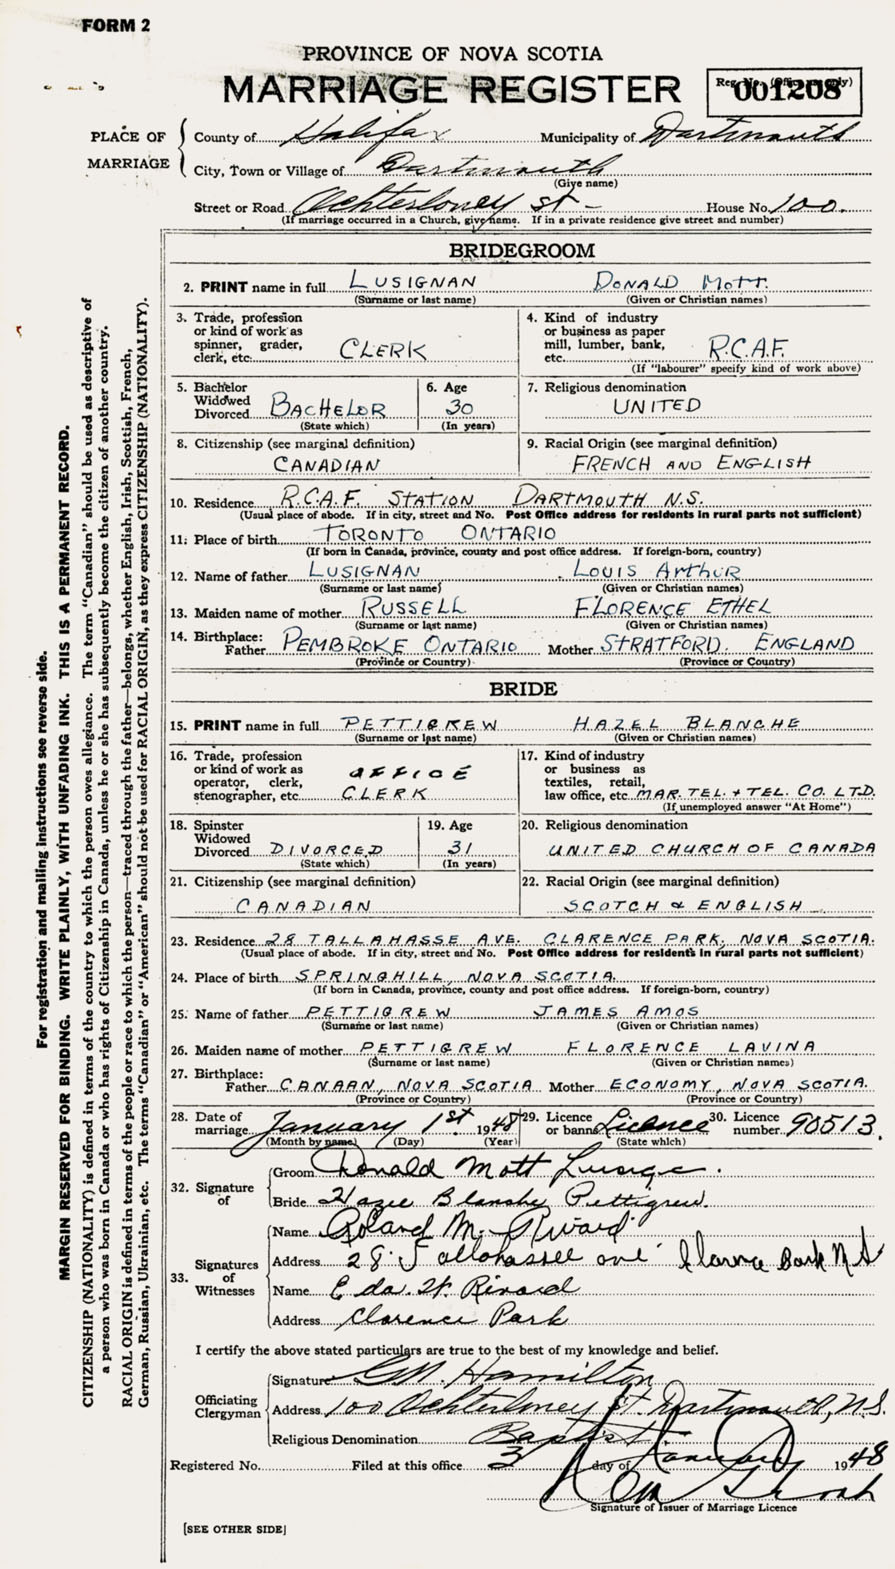 FORM 2
PROVINCE OF NOVA SCOTIA
MARRIAGE REGISTER
Reg. No. (Office use only)
001208
PLACE OF MARRIAGE
County of Halifax Municipality of Dartmouth
City, Town or Village of Dartmouth
(Give name)
Street or Road Ochterloney St - House No. 100.
(If marriage occurred in a Church, give name. If in a private residence give street and number)
BRIDEGROOM
2. PRINT name in full LUSIGNAN DONALD MOTT.
(Surname or last name) (Given or Christian names)
3. Trade, profession or kind of work as spinner, grader, clerk, etc. CLERK
4. Kind of industry or business as paper mill, lumber, bank, etc. R.C.A.F.
(If "labourer" specify kind of work above)
5. Bachelor Widowed Divorced BACHELOR
(State which)
6. Age 30
(In years)
7. Religious denomination
UNITED
8. Citizenship (see marginal definition)
CANADIAN
9. Racial Origin (see marginal definition)
FRENCH AND ENGLISH
10. Residence R.C.A.F. STATION DARTMOUTH N.S.
(Usual place of abode. If in city, street and No. Post Office address for residents in rural parts not sufficient)
11. Place of birth TORONTO ONTARIO
(If born in Canada, province, county and post office address. If foreign-born, country)
12. Name of father LUSIGNAN LOUIS ArthUR
(Surname or last name) (Given or Christian names)
13. Maiden name of mother RUSSELL FLORENCE ETHEL
(Surname or last name) (Given or Christian names)
14. Birthplace:
Father PEMBROKE ONTARIO Mother STRATFORD. ENGLAND
(Province or Country) (Province or Country)
BRIDE
15. PRINT name in full PETTIGREW HAZEL BLANCHE
(Surname or last name) (Given or Christian names)
16. Trade, profession or kind of work as operator, clerk, stenographer, etc. OFFICE CLERK
17. Kind of industry or business as textiles, retail, law office, etc. MAR. TEL. + TEL. CO. LTD.
(If unemployed answer "At Home")
18. Spinster Widowed Divorced DIVORCED
(State which)
19. Age 31
(In years)
20. Religious denomination
UNITED CHURCH OF CANADA
21. Citizenship (see marginal definition)
CANADIAN
22. Racial Origin (see marginal definition)
SCOTCH & ENGLISH
23. Residence 28 TALLAHASSE AVE. CLARENCE PARK, NOVA SCOTIA.
(Usual place of abode. If in city, street and No. Post Office address for residents in rural parts not sufficient)
24. Place of birth SPRINGHILL, NOVA SCOTIA.
(If born in Canada, province, county and post office address. If foreign-born, country)
25. Name of father PETTIGREW JAMES AMOS
(Surname or last name) (Given or Christian names)
26. Maiden name of mother PETTIGREW FLORENCE LAVINA
(Surname or last name) (Given or Christian names)
27. Birthplace:
Father CANAAN, NOVA SCOTIA Mother ECONOMY, NOVA SCOTIA.
(Province or Country) (Province or Country)
28. Date of marriage January 1st 1948
(Month by name) (Day) (Year)
29. Licence or banns Licence
(State which)
30. Licence number 90513.
32. Signature of
Groom Donald Mott Lusignan.
Bride Hazel Blanche Pettigrew.
33. Signatures of Witnesses
Name Roland M. Rivard
Address 28 Tallahassee ave Clarence Park N.S
Name Eda. H. Rivard
Address Clarence Park
I certify the above stated particulars are true to the best of my knowledge and belief.
Officiating Clergyman
Signature G.M. Hamilton
Address 100 Ochterloney St. Dartmouth, N.S.
Religious Denomination Baptist
Registered No. Filed at this office 3 day of January 1948
Signature of Issuer of Marriage Licence
[SEE OTHER SIDE]
For registration and mailing instructions see reverse side.
MARGIN RESERVED FOR BINDING. WRITE PLAINLY, WITH UNFADING INK. THIS IS A PERMANENT RECORD.
CITIZENSHIP (NATIONALITY) is defined in terms of the country to which the person owes allegiance. The term "Canadian" should be used as descriptive of
a person who was born in Canada or who has rights of Citizenship in Canada, unless he or she has subsequently become the citizen of another country.
RACIAL ORIGIN is defined in terms of the people or race to which the person—traced through the father—belongs, whether English, Irish, Scottish, French,
German, Russian, Ukrainian, etc. The terms "Canadian" or "American" should not be used for RACIAL ORIGIN, as they express CITIZENSHIP (NATIONALITY).